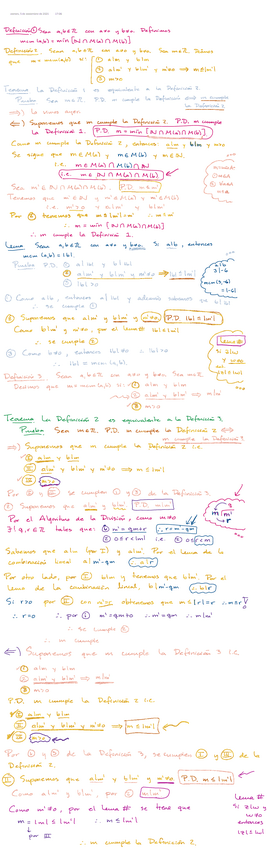 Definición 1 Sean a,b∈ℤ con a≠0 y b≠0. Definimos
mcm (a,b) = min [ℕ∩M(a)∩M(b)]
Definición 2 Sean a,b∈ℤ con a≠0 y b≠0. Sea m∈ℤ. Dicimos
que m = mcm(a,b) si ① a|m y b|m
② a|m' y b|m' y m'≠0 ⟹ m≤|m'|
③ m>0
Teorema La Definición 1 es equivalente a la Definición 2.
Prueba Sea m∈ℤ. P.D. m cumple la Definición 1 ⟺ m cumple
la Definición 2
⟹) Lo vimos ayer.
⟸) Supongamos que m cumple la Definición 2. P.D. m cumple
la Definición 1. P.D. m = min [ℕ∩M(a)∩M(b)]
Como m cumple la Definición 2, entonces: a|m, b|m y m>0
Se sigue que m∈M(a) y m∈M(b) y m∈ℕ.
i.e. m∈M(a)∩M(b)∩ℕ
i.e. m∈ℕ∩M(a)∩M(b)
Sea m'∈ℕ∩M(a)∩M(b). P.D. m≤m'
Tenemos que m'∈ℕ y m'∈M(a) y m'∈M(b)
i.e. m'>0 y a|m' y b|m'
Por ② tenemos que m≤|m'|=m' ∴ m≤m'
∴ m = min [ℕ∩M(a)∩M(b)]
∴ m cumple la Definición 1.
Lema Sean a,b∈ℤ con a≠0 y b≠0. Si a|b, entonces
mcm (a,b) = |b|.
Prueba P.D. ① a||b| y b||b|
② a|m' y b|m' y m'≠0 ⟹ |b|≤|m'|
③ |b|>0
① Como a|b, entonces a||b| y además sabemos que b||b|
∴ se cumple ①
② Supongamos que a|m' y b|m' y m'≠0 P.D. |b|≤|m'|
Como b|m' y m'≠0, por el lema# |b|≤|m'|
∴ se cumple ②
③ Como b≠0, entonces |b|≠0 ∴ |b|>0
∴ |b| = mcm(a,b)
Definición 3 Sean a,b∈ℤ con a≠0 y b≠0. Sea m∈ℤ
Decimos que m=mcm(a,b) si: ① a|m y b|m
② a|m' y b|m' ⟹ m|m'
③ m>0
Teorema La Definición 2 es equivalente a la Definición 3.
Prueba Sea m∈ℤ. P.D. m cumple la Definición 2 ⟺
m cumple la Definición 3
⟹) Supongamos que m cumple la Definición 2 i.e.
Ⓘ a|m y b|m
Ⓘ Ⓘ a|m' y b|m' y m'≠0 ⟹ m≤|m'|
m>0
se cumplen ① y ③ de la Definición 3.
② Supongamos que a|m' y b|m' P.D. m|m'
Por el Algoritmo de la División, como m≠0
∃! q,r∈ℤ tales que: m'=qm+r ∴ r=m'-qm
0≤r<|m| i.e. 0≤r<m
Sabemos que a|m (por I) y a|m'. Por el Lema de la
combinación lineal a|m'-qm ∴ a|r
Por otro lado, por Ⓘ b|m y tenemos que b|m'. Por el
Lema de la combinación lineal, b|m'-qm ∴ b|r
∴ r=0 ∴ por m'=qm+0 ∴ m'=qm ∴ m|m'
∴ se cumple ②
∴ m cumple
⟸) Supongamos que m cumple la Definición 3 i.e.
① a|m y b|m
② a|m' y b|m' ⟹ m|m'
③ m>0
P.D. m cumple la Definición 2 i.e.
a|m y b|m
a|m' y b|m' y m'≠0 ⟹ m≤|m'|
m>0
Por ① y ③ de la Definición 3, se cumplen Ⓘ y III de la
Definición 2.
Supongamos que a|m' y b|m' y m'≠0 P.D. m≤|m'|
Como a|m' y b|m', por ② m|m'
Como m'≠0, por el lema # se tiene que
m = |m| ≤ |m'| ∴ m≤|m'|
por III
∴ m cumple la Definición 2.
Lema #
Si z|w y
w≠0
entonces
|z|≤|w|